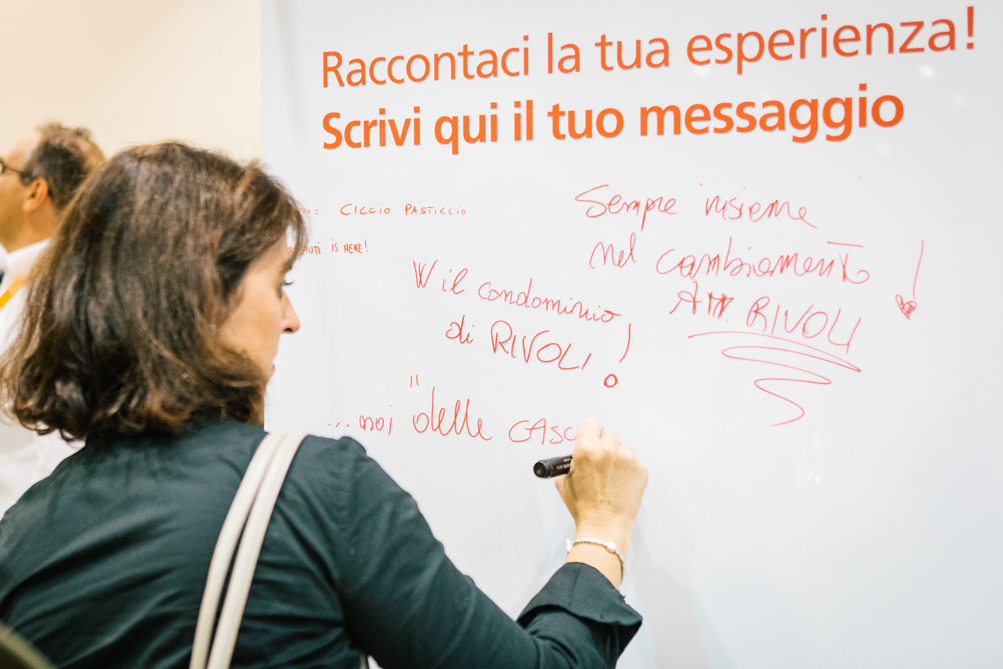 Raccontaci la tua esperienza!
Scrivi qui il tuo messaggio
CICCIO PASTICCIO
IS HERE!
Sempre insieme
nel cambiamento
RIVOLI
!
W il condominio
di RIVOLI!
...noi "delle CASC